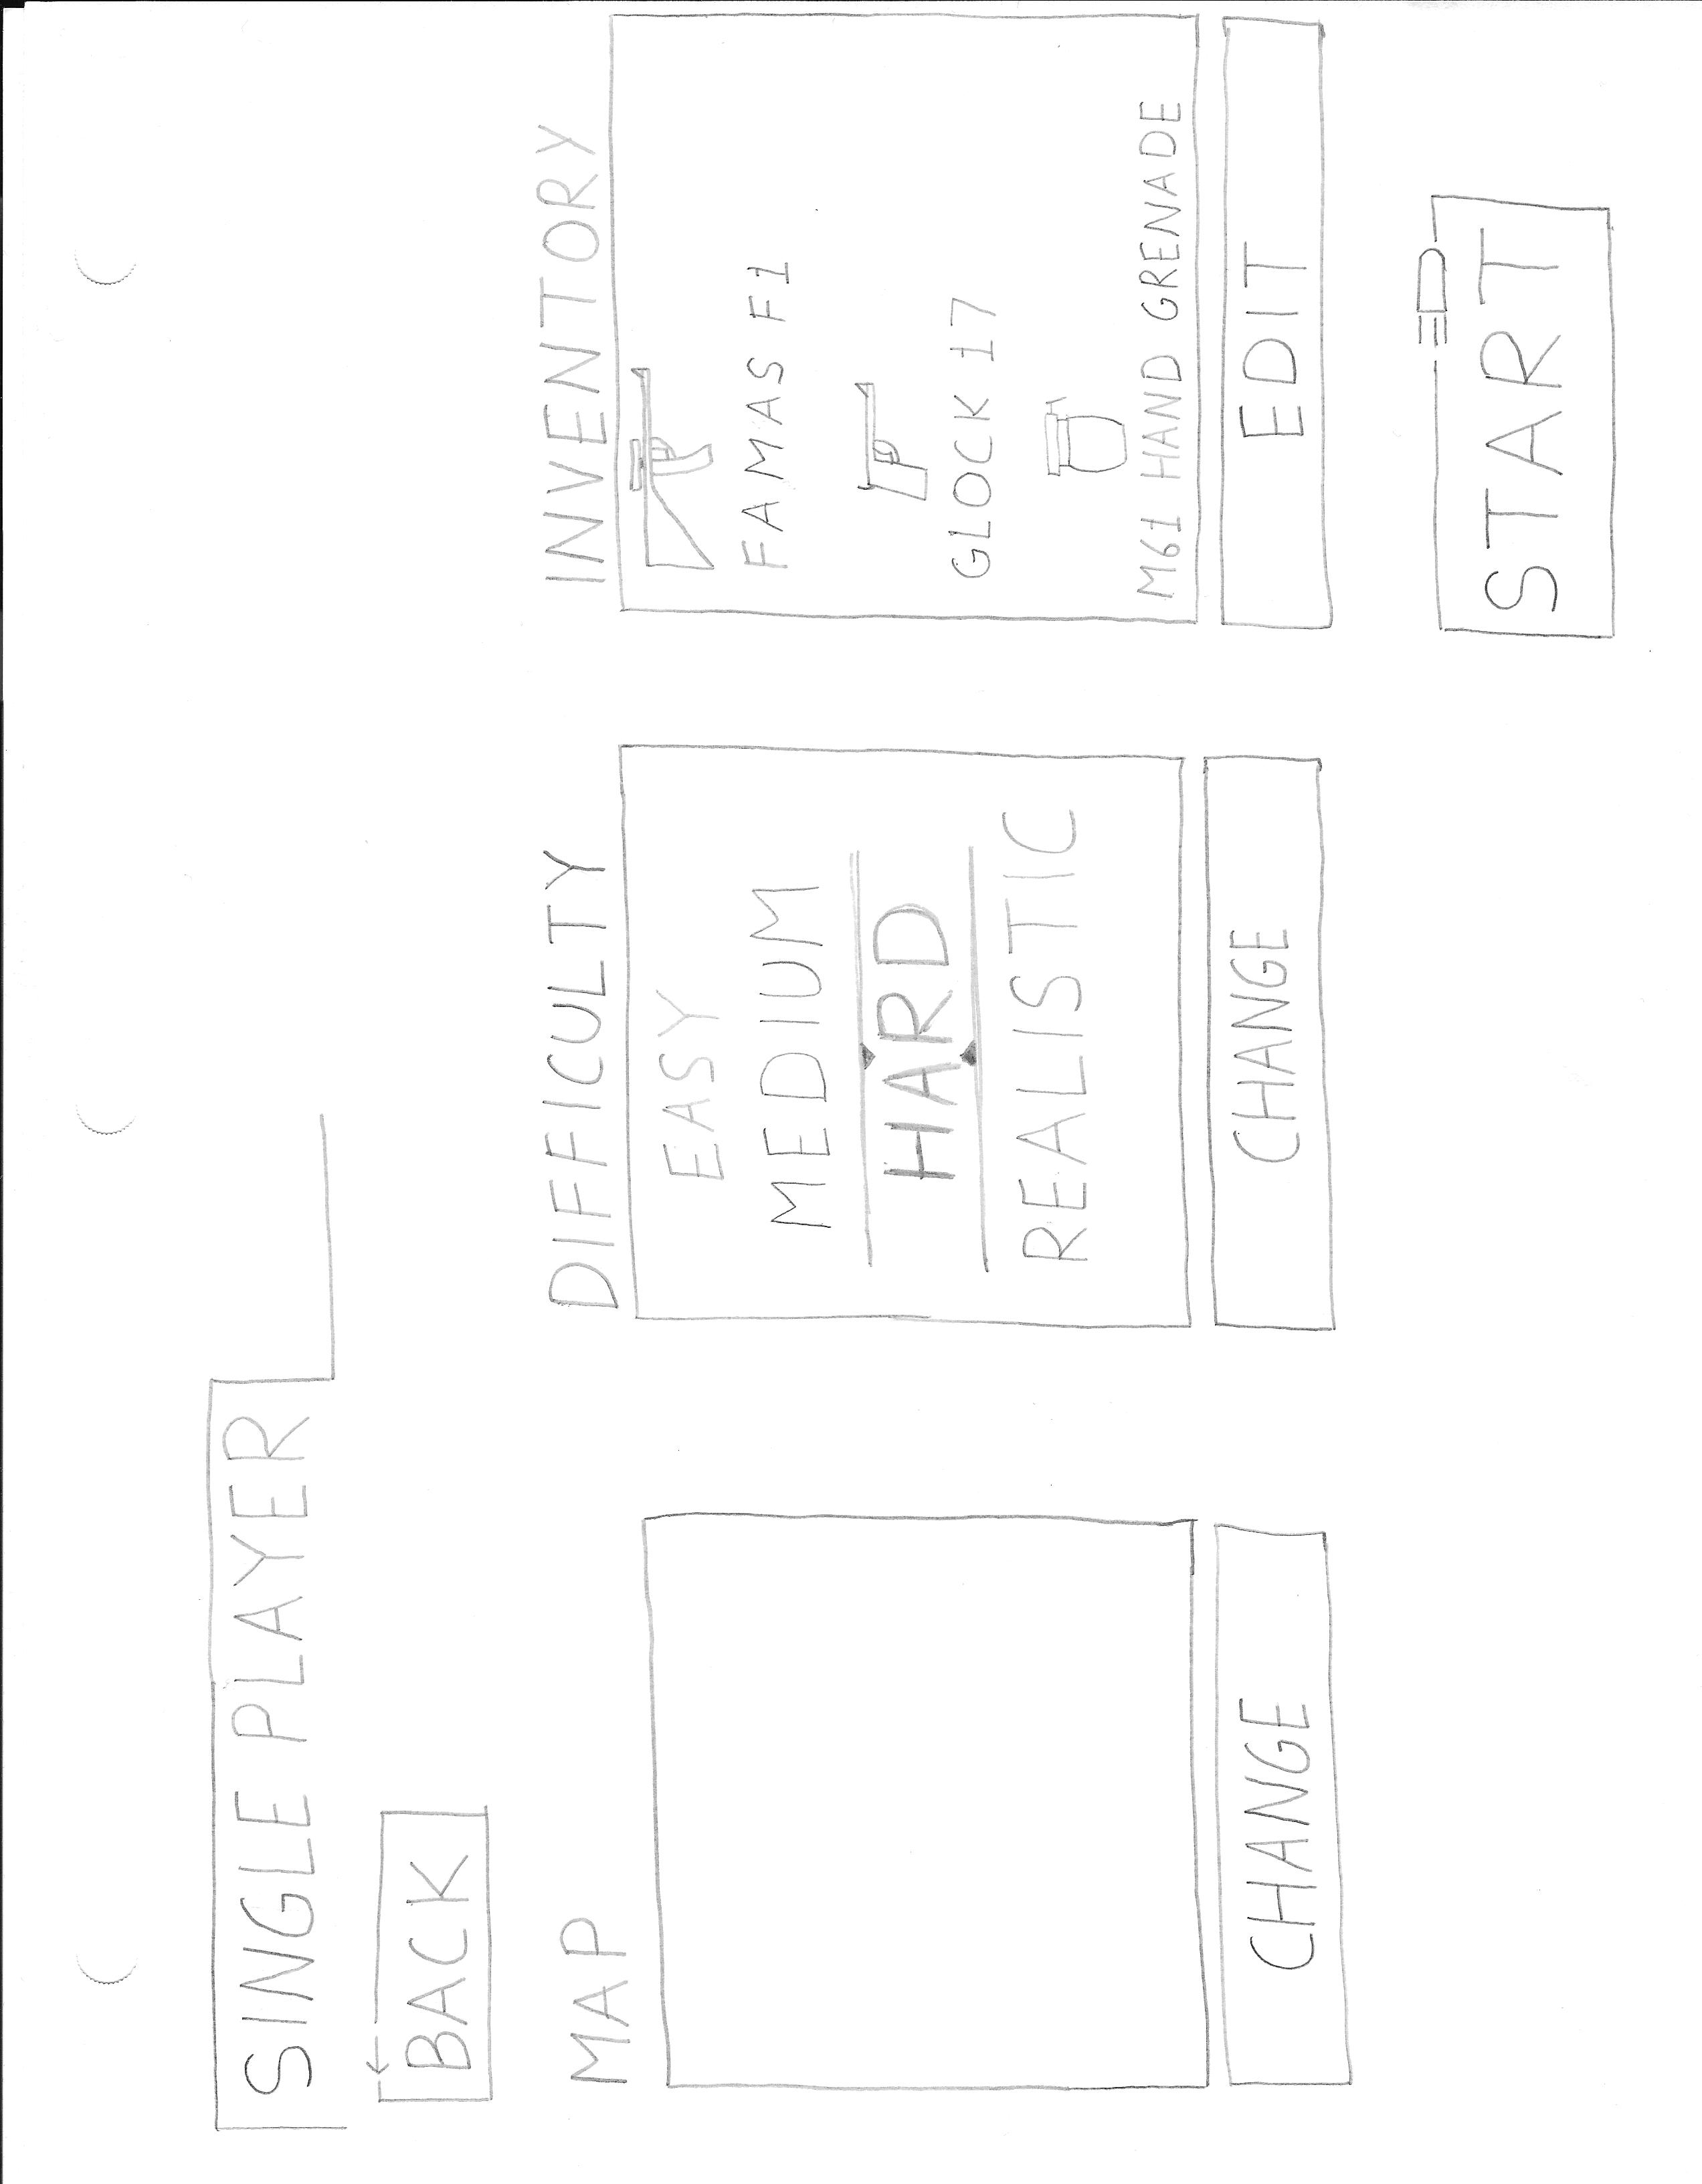 SINGLE PLAYER
BACK
MAP
CHANGE
DIFFICULTY
EASY
MEDIUM
HARD
REALISTIC
CHANGE
INVENTORY
FAMAS F1
GLOCK 17
M61 HAND GRENADE
EDIT
START